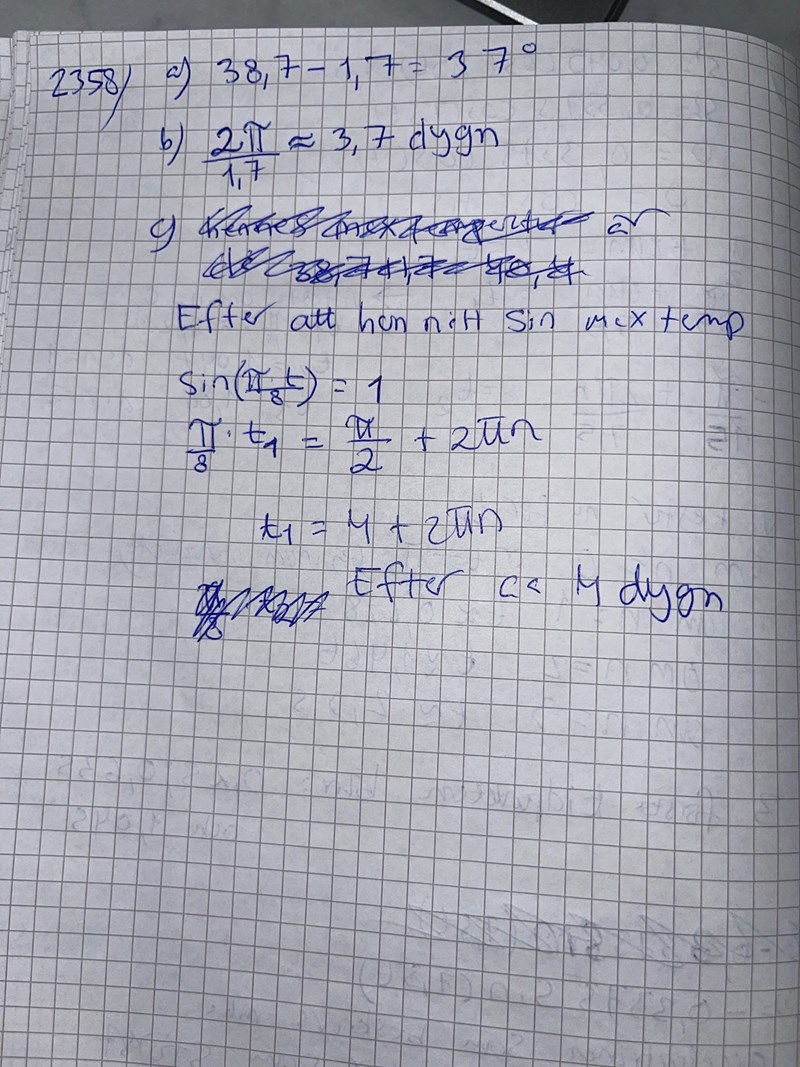 2358) a) 38,7 - 1,7 = 37°
b) 2π/1,7 ≈ 3,7 dygn
c) är
Efter att hon nått sin max temp
sin(π/8 t) = 1
π/8 · t₁ = π/2 + 2πn
t₁ = 4 + 2πn
Efter ca 4 dygn